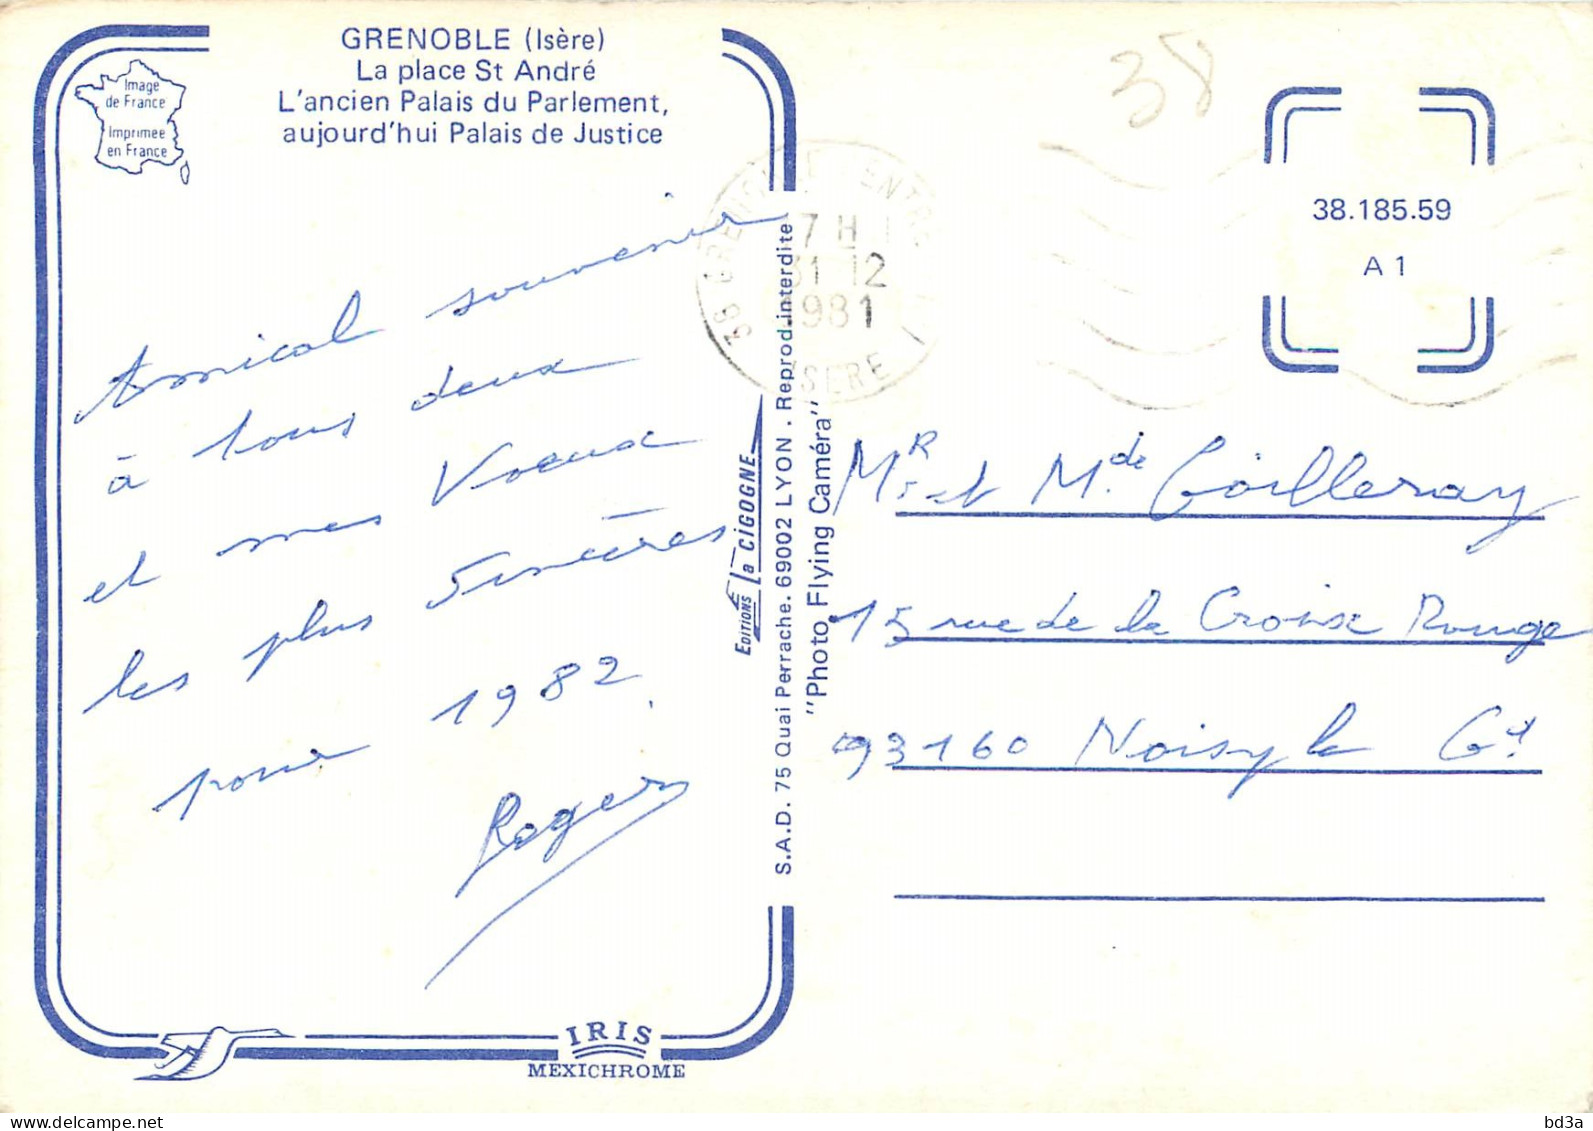 GRENOBLE (Isère)
La place St André
L'ancien Palais du Parlement,
aujourd'hui Palais de Justice
Image
de France
Imprimée
en France
Amical souvenir
à tous deux
et mes Voeux
les plus Sincères
pour 1982.
Roger
IRIS
MEXICHROME
EDITIONS la CIGOGNE
S.A.D. 75 Quai Perrache. 69002 LYON. Reprod. interdite
"Photo Flying Caméra"
38 GRENOBLE
7 H
31 12
1981
ISERE
38
38.185.59
A 1
MR et Mde
15 rue de la Croix Rouge
93160 Noisy le Gd
bd3a